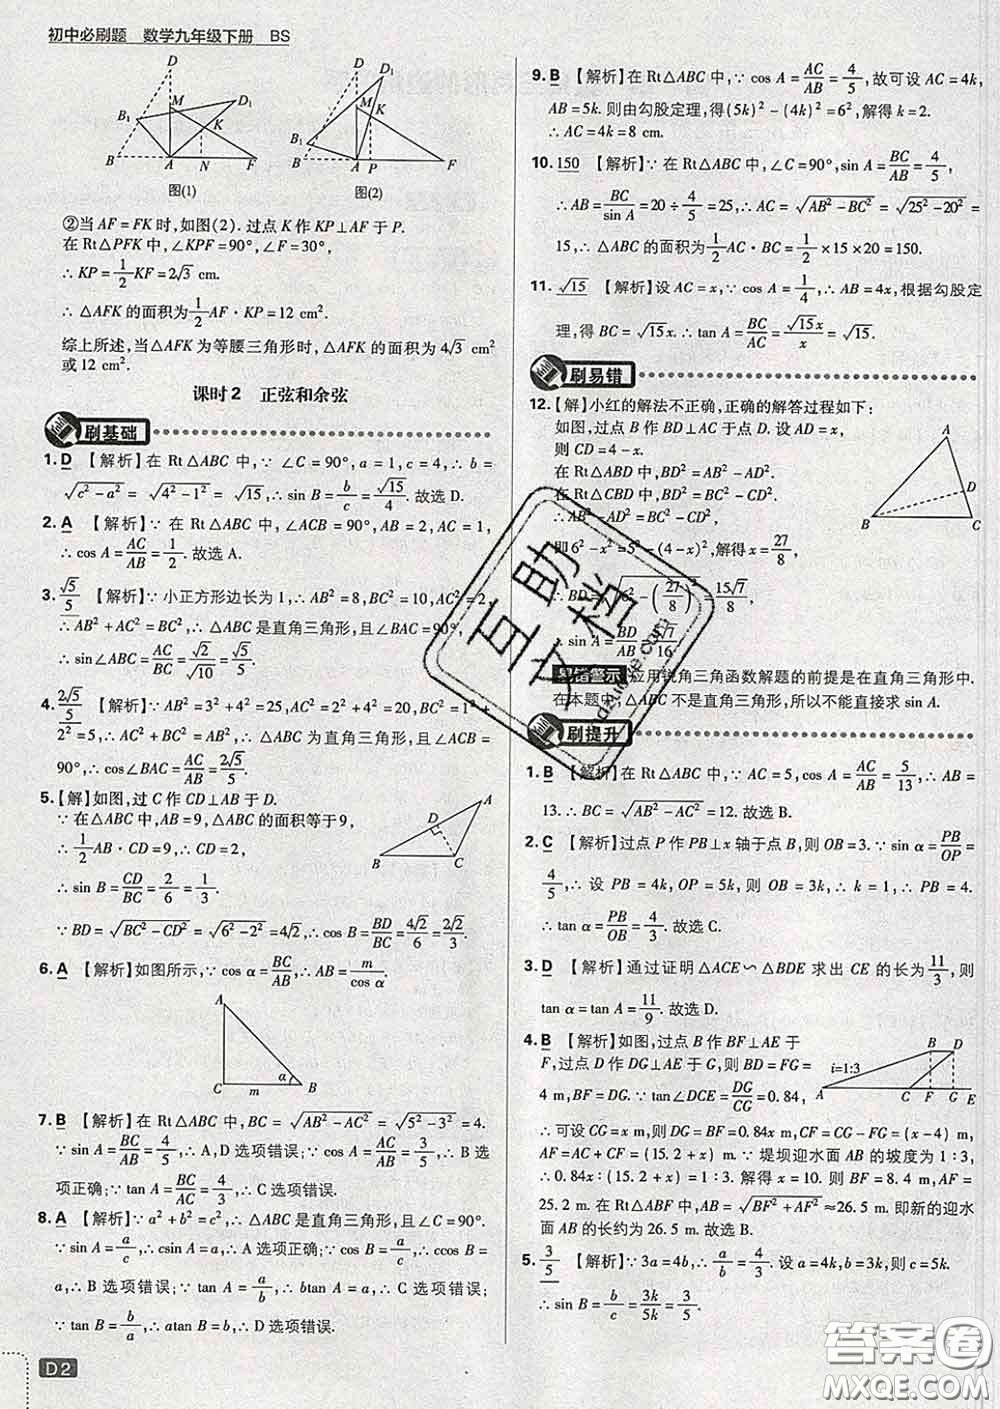 初中必刷题 数学九年级下册 BS
D
D
M
B₁
D₁
K
B
A
N
F
图(1)
M
D₁
K
B₁
B
A
P
F
图(2)
②当 AF = FK 时, 如图(2). 过点 K 作 KP⊥AF 于 P.
在 Rt△PFK 中, ∠KPF = 90°, ∠F = 30°,
∴ KP = 1/2 KF = 2√3 cm.
∴ △AFK 的面积为 1/2 AF · KP = 12 cm².
综上所述, 当 △AFK 为等腰三角形时, △AFK 的面积为 4√3 cm²
或 12 cm².
课时2 正弦和余弦
刷基础
1. D 【解析】在 Rt△ABC 中, ∵ ∠C = 90°, a = 1, c = 4, ∴ b =
√(c² − a²) = √(4² − 1²) = √15, ∴ sin B = b/c = √15/4. 故选 D.
2. A 【解析】∵ 在 Rt△ABC 中, ∠ACB = 90°, AB = 2, AC = 1,
∴ cos A = AC/AB = 1/2. 故选 A.
3. √5/5 【解析】∵ 小正方形边长为 1, ∴ AB² = 8, BC² = 10, AC² = 2,
∴ AB² + AC² = BC², ∴ △ABC 是直角三角形, 且 ∠BAC = 90°,
∴ sin∠ABC = AC/BC = √2/√10 = √5/5.
4. 2√5/5 【解析】∵ AB² = 3² + 4² = 25, AC² = 2² + 4² = 20, BC² = 1² +
2² = 5, ∴ AB² = AC² + BC², ∴ △ABC 为直角三角形, 且 ∠ACB
= 90°, ∴ cos∠BAC = AC/AB = 2√5/5.
5. 【解】如图, 过 C 作 CD⊥AB 于 D.
∵ 在 △ABC 中, AB = 9, △ABC 的面积等于 9,
∴ 1/2 AB · CD = 9, ∴ CD = 2,
∴ sin B = CD/BC = 2/6 = 1/3.
A
D
B
C
∵ BD = √(BC² − CD²) = √(6² − 2²) = 4√2, ∴ cos B = BD/BC = 4√2/6 = 2√2/3.
6. A 【解析】如图所示, ∵ cos α = BC/AB, ∴ AB = m/cos α.
A
C
m
α
B
7. B 【解析】在 Rt△ABC 中, BC = √(AB² − AC²) = √(5² − 3²) = 4.
∵ sin A = BC/AB = 4/5, ∴ A, D 选项错误; ∵ cos A = AC/AB = 3/5, ∴ B 选
项正确; ∵ tan A = BC/AC = 4/3, ∴ C 选项错误.
8. A 【解析】∵ a² + b² = c², ∴ △ABC 是直角三角形, 且 ∠C = 90°.
∵ sin A = a/c, ∴ csin A = a, ∴ A 选项正确; ∵ cos B = a/c, ∴ ccos B =
a, ∴ B 选项错误; ∵ tan A = a/b, ∴ btan A = a, ∴ C 选项错误;
∵ tan B = b/a, ∴ atan B = b, ∴ D 选项错误.
D2
9. B 【解析】∵ 在 Rt△ABC 中, ∵ cos A = AC/AB = 4/5, 故可设 AC = 4k,
AB = 5k. 则由勾股定理, 得(5k)² − (4k)² = 6², 解得 k = 2.
∴ AC = 4k = 8 cm.
10. 150 【解析】∵ 在 Rt△ABC 中, ∠C = 90°, sin A = BC/AB = 4/5,
∴ AB = BC/sin A = 20 ÷ 4/5 = 25, ∴ AC = √(AB² − BC²) = √(25² − 20²) =
15, ∴ △ABC 的面积为 1/2 AC · BC = 1/2 × 15 × 20 = 150.
11. √15 【解析】设 AC = x, ∵ cos A = 1/4, ∴ AB = 4x, 根据勾股定
理, 得 BC = √15x. ∴ tan A = BC/AC = √15x/x = √15.
刷易错
12. 【解】小红的解法不正确, 正确的解答过程如下:
如图, 过点 B 作 BD⊥AC 于点 D. 设 AD = x,
则 CD = 4 − x.
在 Rt△ABD 中, AB² − AD² = BD²,
在 Rt△CBD 中, BC² − CD² = BD²,
∴ AB² − AD² = BC² − CD²,
即 6² − x² = 5² − (4 − x)², 解得 x = 27/8,
∴ BD = √(6² − (27/8)²) = 15√7/8,
∴ sin A = BD/AB = 5√7/16.
A
D
B
C
易错警示 应用锐角三角函数解题的前提是在直角三角形中.
在本题中, △ABC 不是直角三角形, 所以不能直接求 sin A.
刷提升
1. B 【解析】在 Rt△ABC 中, ∵ AC = 5, cos A = AC/AB = 5/13, ∴ AB =
13. ∴ BC = √(AB² − AC²) = 12. 故选 B.
2. C 【解析】过点 P 作 PB⊥x 轴于点 B, 则 OB = 3. ∵ sin α = PB/OP =
4/5, ∴ 设 PB = 4k, OP = 5k, 则 OB = 3k, ∴ k = 1, ∴ PB = 4,
tan α = PB/OB = 4/3. 故选 C.
3. D 【解析】通过证明 △ACE ∽ △BDE 求出 CE 的长为 11/3, 则
tan α = tan A = 11/9. 故选 D.
4. B 【解析】如图, 过点 B 作 BF⊥AE 于
F, 过点 D 作 DG⊥AE 于 G, 则 BD = FG =
4 m, BF = DG. ∵ tan∠DCE = DG/CG = 0.84,
B
D
i=1:3
A
C
F
G
E
∴ 可设 CG = x m, 则 DG = BF = 0.84x m, ∴ CF = CG − FG = (x − 4) m,
AF = AC + CF = (15.2 + x) m. ∵ 堤坝迎水面 AB 的坡度为 1:3,
∴ 0.84x : (15.2 + x) = 1:3, 解得 x = 10. 则 BF = 8.4 m, AF =
25.2 m. 在 Rt△ABF 中, AB = √(BF² + AF²) ≈ 26.5 m. 即新的迎水
面 AB 的长约为 26.5 m. 故选 B.
5. 3/5 【解析】∵ 3a = 4b, ∴ a/b = 4/3. 设 a = 4k, b = 3k, 则 c = 5k.
∴ sin B = b/c = 3k/5k = 3/5.
互助文档
答案圈
MXQE.COM